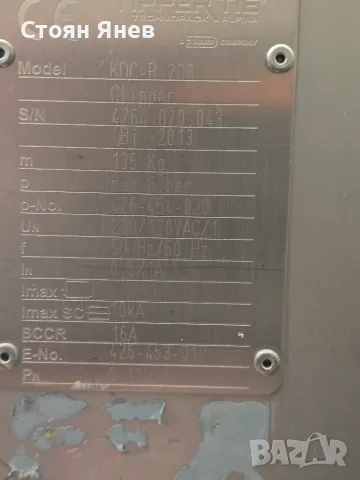 Стоян Янев
CE TIPPER TIE
TECHNOPACK ALPINA
A DOVER COMPANY
Model KDC-R 200
Clipper
S/N 4264 020 043
Bj 2013
m 135 Kg
p max 6Bar
p-No. 426-454-020
UN 230/120VAC/1
f 50 Hz/60 Hz
IN
Imax
Imax SC 10kA
SCCR 16A
E-No. 426-453-010
PN
BAZAR